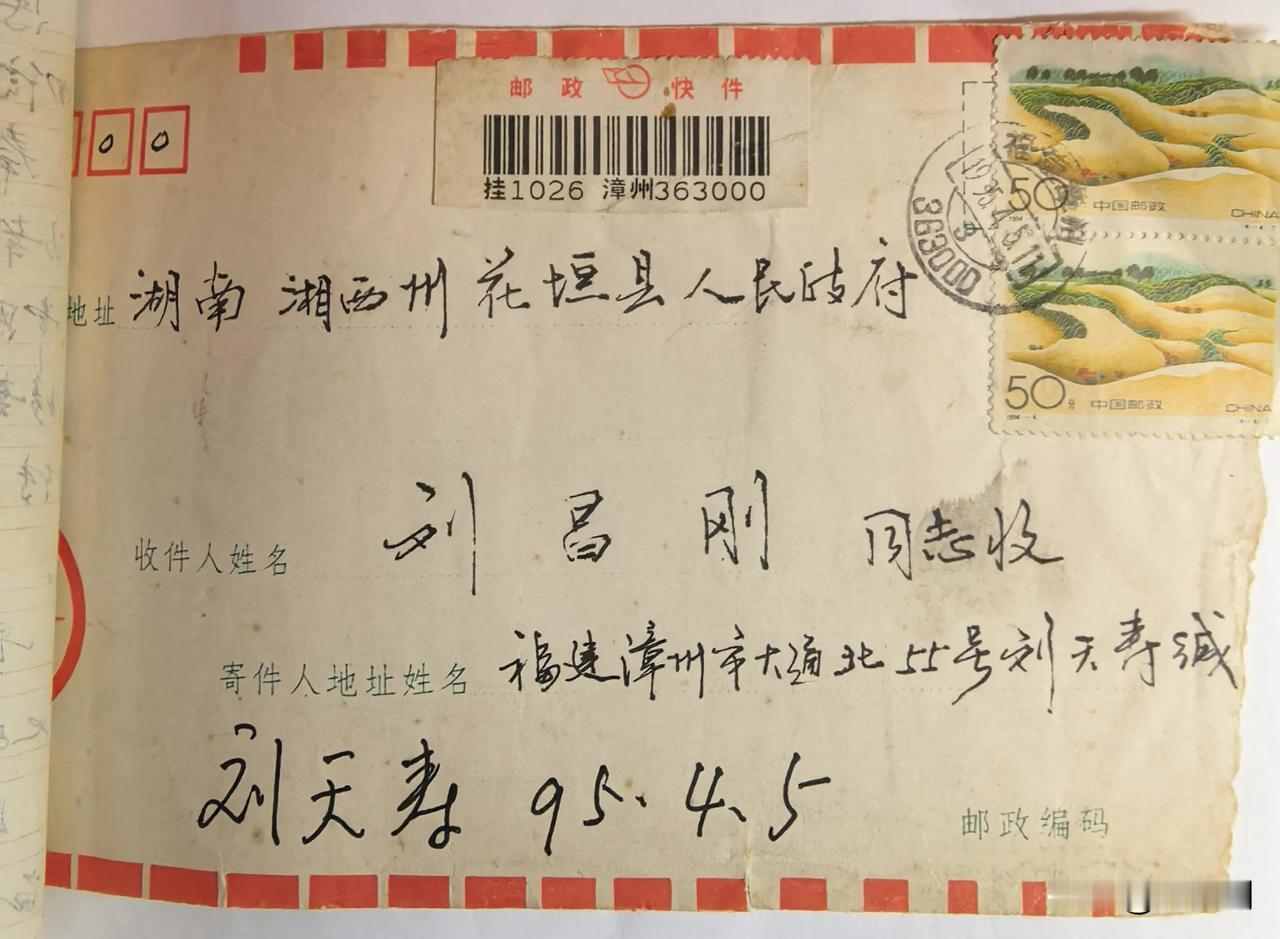 邮政 快件
挂1026 漳州363000
0 0
50 中国邮政 CHINA
地址 湖南 湘西州 花垣县 人民政府
363000
50分 中国邮政 CHINA
收件人姓名 刘昌刚 同志收
寄件人地址姓名 福建漳州市大通北55号刘天寿缄
刘天寿 95.4.5
邮政编码